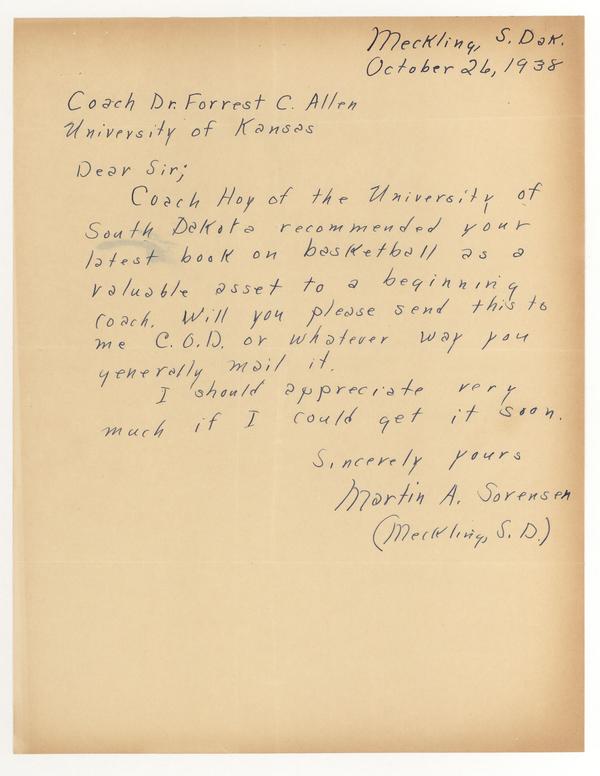 Meckling, S. Dak.
October 26, 1938
Coach Dr. Forrest C. Allen
University of Kansas
Dear Sir;
Coach Hoy of the University of
South Dakota recommended your
latest book on basketball as a
valuable asset to a beginning
coach. Will you please send this to
me C.O.D. or whatever way you
generally mail it.
I should appreciate very
much if I could get it soon.
Sincerely yours
Martin A. Sorensen
(Meckling, S. D.)